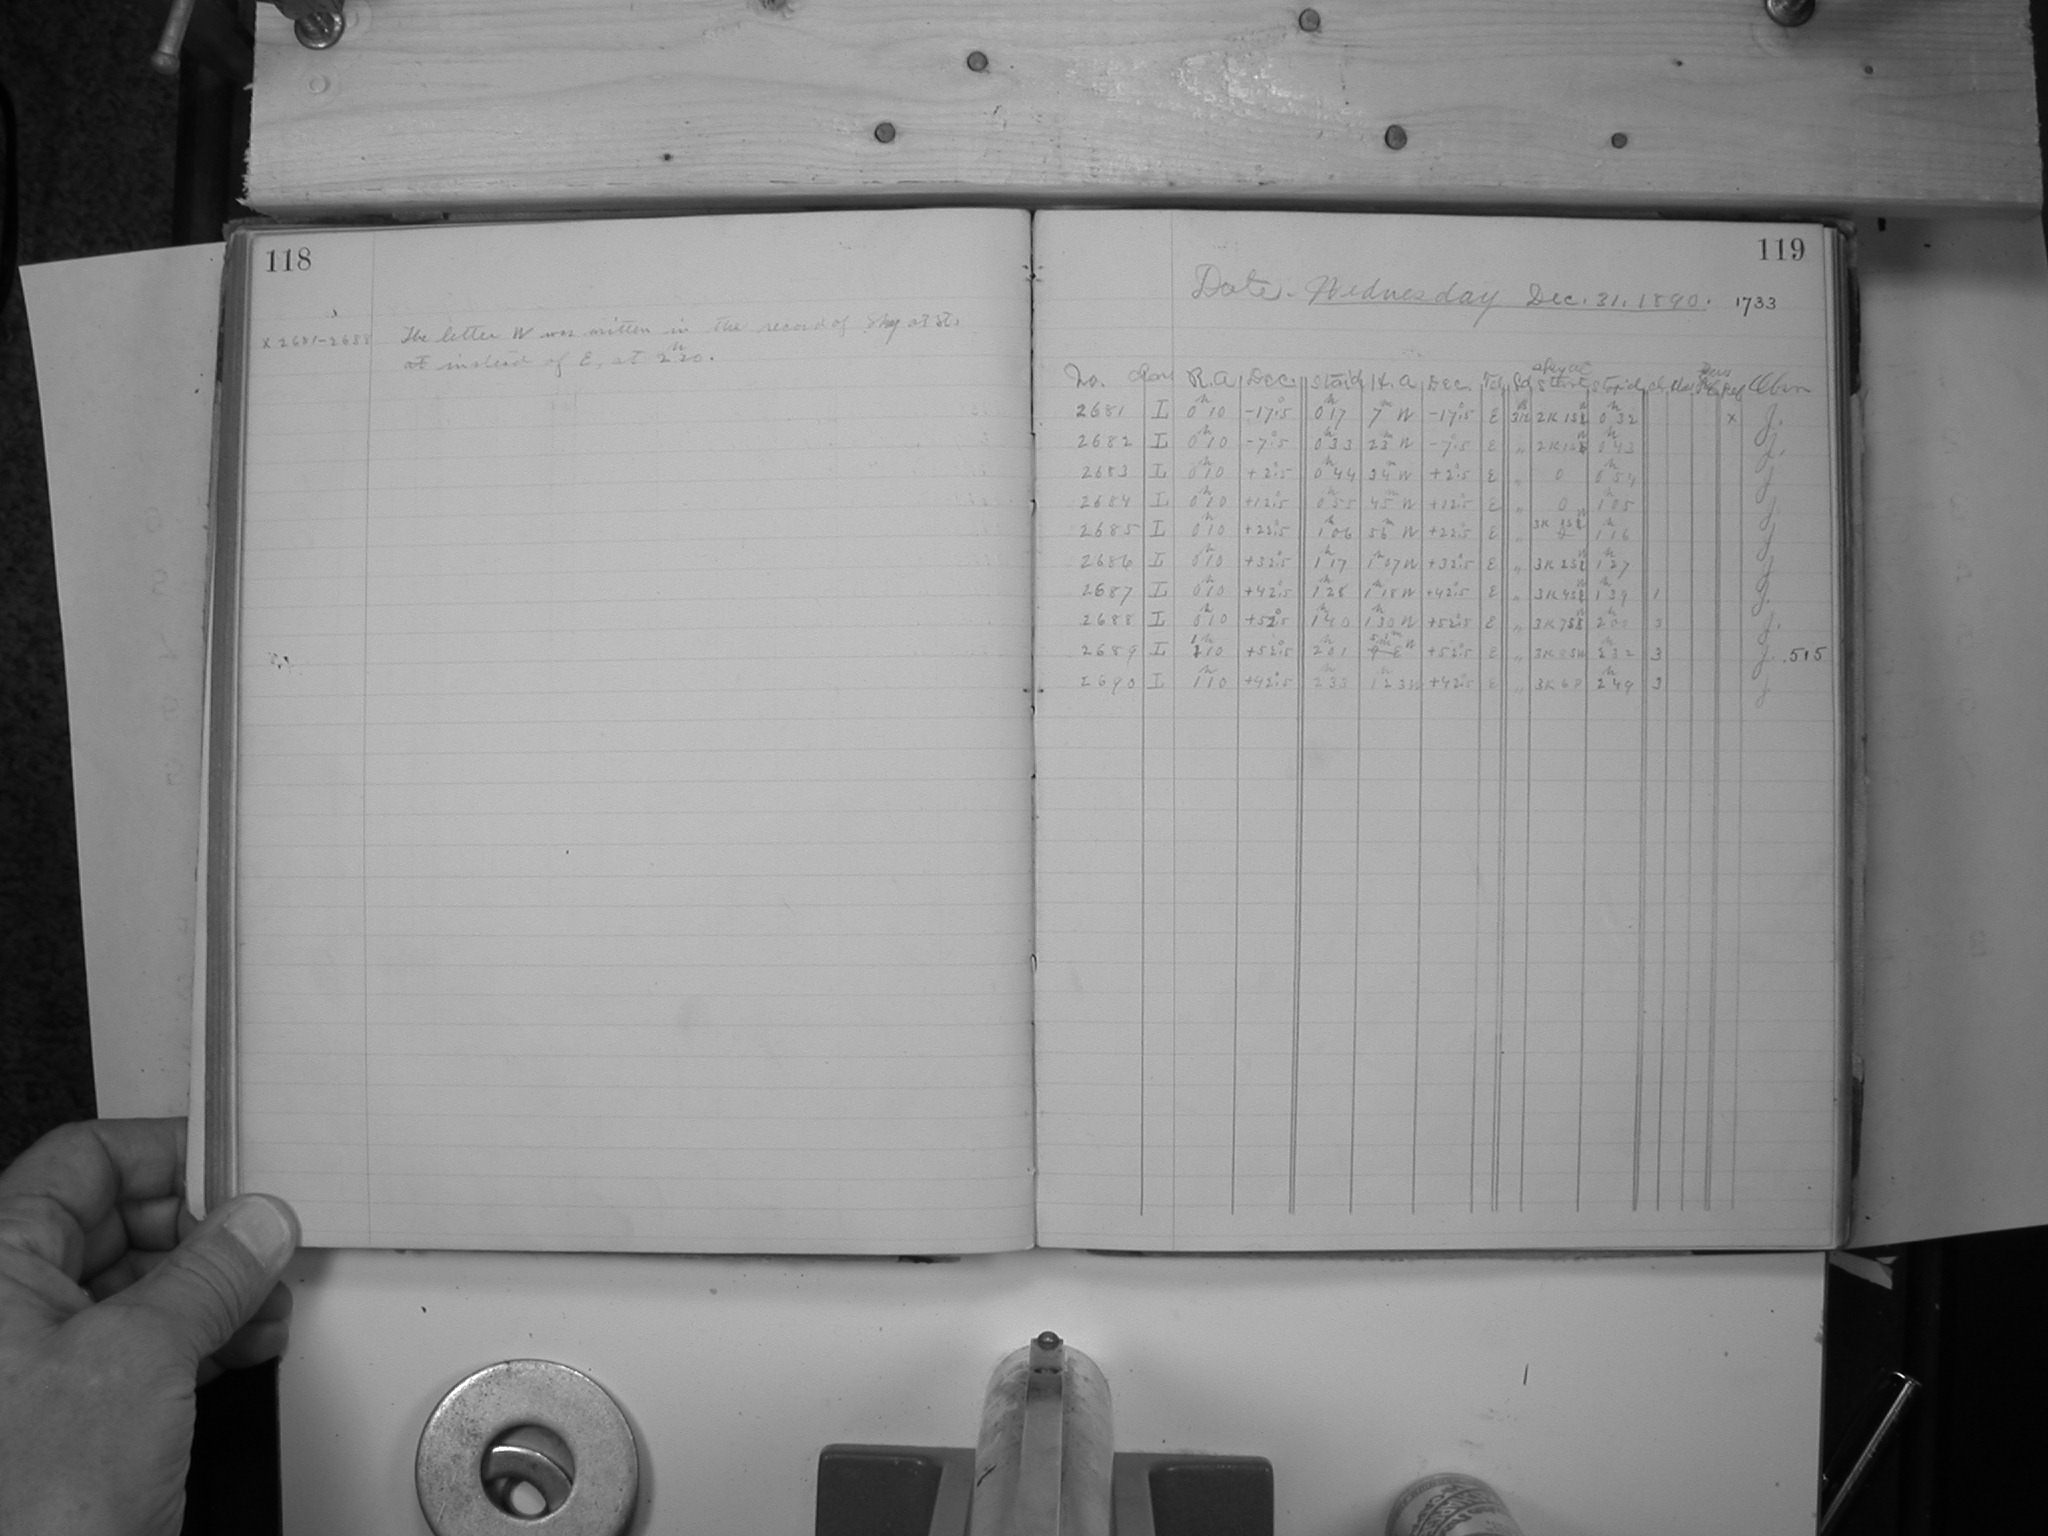 118
x 2681-2688 The letter W was written in the record of Sky at St.
at instead of E, at 2h20.
119
Date. Wednesday Dec. 31. 1890. 1733
No. R.A Dec. Star'd H.A Dec. Sky at Start Stop'd Ch Ref Obsr
2681 I 0h10 -17°.5 0h17 7m W -17°.5 E 0h32 x J.
2682 I 0h10 -7°.5 0h33 23m W -7°.5 E " 0h43 J.
2683 I 0h10 +2°.5 0h44 34m W +2°.5 E " 0 0h54 J
2684 I 0h10 +12°.5 0h55 45m W +12°.5 E " 0 1h05 J
2685 I 0h10 +22°.5 1h06 56m W +22°.5 E " 1h16 J
2686 I 0h10 +32°.5 1h17 1h07 W +32°.5 E " 1h27 J
2687 I 0h10 +42°.5 1h28 1h18 W +42°.5 E " 1h39 1 J.
2688 I 0h10 +52°.5 1h40 1h30 W +52°.5 E " 2h00 3 J.
2689 I 1h10 +52°.5 2h01 +52°.5 E " 2h32 3 J .515
2690 I 1h10 +42°.5 2h33 1h23 W +42°.5 E " 2h49 3 J